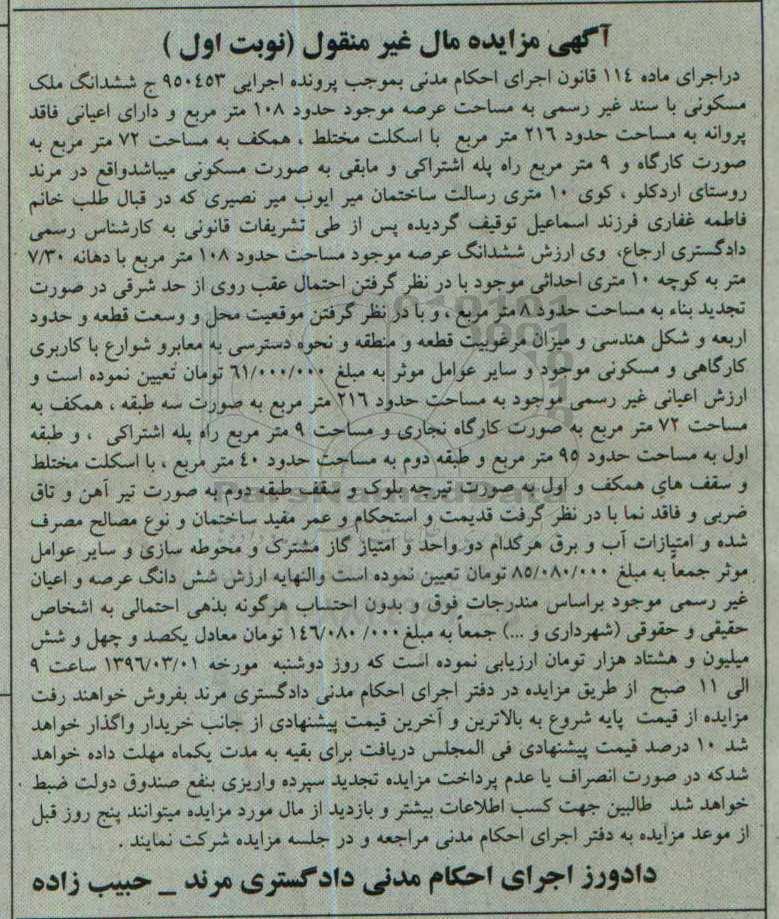 آگهی مزایده مال غیر منقول (نوبت اول )
دراجرای ماده ۱۱٤ قانون اجرای احکام مدنی بموجب پرونده اجرایی ۹۵۰٤۵۳ ج ششدانگ ملک
مسکونی با سند غیر رسمی به مساحت عرصه موجود حدود ۱۰۸ متر مربع و دارای اعیانی فاقد
پروانه به مساحت حدود ۲۱٦ متر مربع با اسکلت مختلط ، همکف به مساحت ۷۲ متر مربع به
صورت کارگاه و ۹ متر مربع راه پله اشتراکی و مابقی به صورت مسکونی میباشدواقع در مرند
روستای اردکلو ، کوی ۱۰ متری رسالت ساختمان میر ایوب میر نصیری که در قبال طلب خانم
فاطمه غفاری فرزند اسماعیل توقیف گردیده پس از طی تشریفات قانونی به کارشناس رسمی
دادگستری ارجاع، وی ارزش ششدانگ عرصه موجود مساحت حدود ۱۰۸ متر مربع با دهانه ۷/۳۰
متر به کوچه ۱۰ متری احداثی موجود با در نظر گرفتن احتمال عقب روی از حد شرقی در صورت
تجدید بناء به مساحت حدود ۸ متر مربع ، و با در نظر گرفتن موقعیت محل و وسعت قطعه و حدود
اربعه و شکل هندسی و میزان مرغوبیت قطعه و منطقه و نحوه دسترسی به معابرو شوارع با کاربری
کارگاهی و مسکونی موجود و سایر عوامل موثر به مبلغ ٦۱/۰۰۰/۰۰۰ تومان تعیین نموده است و
ارزش اعیانی غیر رسمی موجود به مساحت حدود ۲۱٦ متر مربع به صورت سه طبقه ، همکف به
مساحت ۷۲ متر مربع به صورت کارگاه نجاری و مساحت ۹ متر مربع راه پله اشتراکی ، و طبقه
اول به مساحت حدود ۹۵ متر مربع و طبقه دوم به مساحت حدود ٤۰ متر مربع ، با اسکلت مختلط
و سقف های همکف و اول به صورت تیرچه بلوک و سقف طبقه دوم به صورت تیر آهن و تاق
ضربی و فاقد نما با در نظر گرفت قدیمت و استحکام و عمر مفید ساختمان و نوع مصالح مصرف
شده و امتیازات آب و برق هرکدام دو واحد و امتیاز گاز مشترک و محوطه سازی و سایر عوامل
موثر جمعاً به مبلغ ۸۵/۰۸۰/۰۰۰ تومان تعیین نموده است والنهایه ارزش شش دانگ عرصه و اعیان
غیر رسمی موجود براساس مندرجات فوق و بدون احتساب هرگونه بذهی احتمالی به اشخاص
حقیقی و حقوقی (شهرداری و ...) جمعاً به مبلغ ۱٤٦/۰۸۰/۰۰۰ تومان معادل یکصد و چهل و شش
میلیون و هشتاد هزار تومان ارزیابی نموده است که روز دوشنبه مورخه ۱۳۹٦/۰۳/۰۱ ساعت ۹
الی ۱۱ صبح از طریق مزایده در دفتر اجرای احکام مدنی دادگستری مرند بفروش خواهند رفت
مزایده از قیمت پایه شروع به بالاترین و آخرین قیمت پیشنهادی از جانب خریدار واگذار خواهد
شد ۱۰ درصد قیمت پیشنهادی فی المجلس دریافت برای بقیه به مدت یکماه مهلت داده خواهد
شدکه در صورت انصراف یا عدم پرداخت مزایده تجدید سپرده واریزی بنفع صندوق دولت ضبط
خواهد شد طالبین جهت کسب اطلاعات بیشتر و بازدید از مال مورد مزایده میتوانند پنج روز قبل
از موعد مزایده به دفتر اجرای احکام مدنی مراجعه و در جلسه مزایده شرکت نمایند .
دادورز اجرای احکام مدنی دادگستری مرند _ حبیب زاده